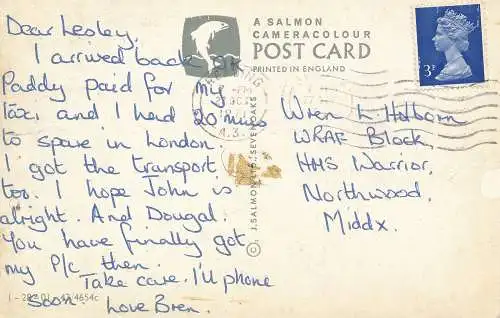 Dear Lesley,
I arrived back OK
Paddy paid for my
Taxi and I had 20 mins
to spare in London.
I got the transport,
too. I hope John is
alright. And Dougal.
You have finally got
my P/c then.
Take care, I'll phone
soon. Love Bren.
A SALMON
CAMERACOLOUR
POST CARD
PRINTED IN ENGLAND
3P
Wren L. Holborn
WRAF Block,
HMS Warrior,
Northwood,
Middx.
© J. SALMON LTD., SEVENOAKS